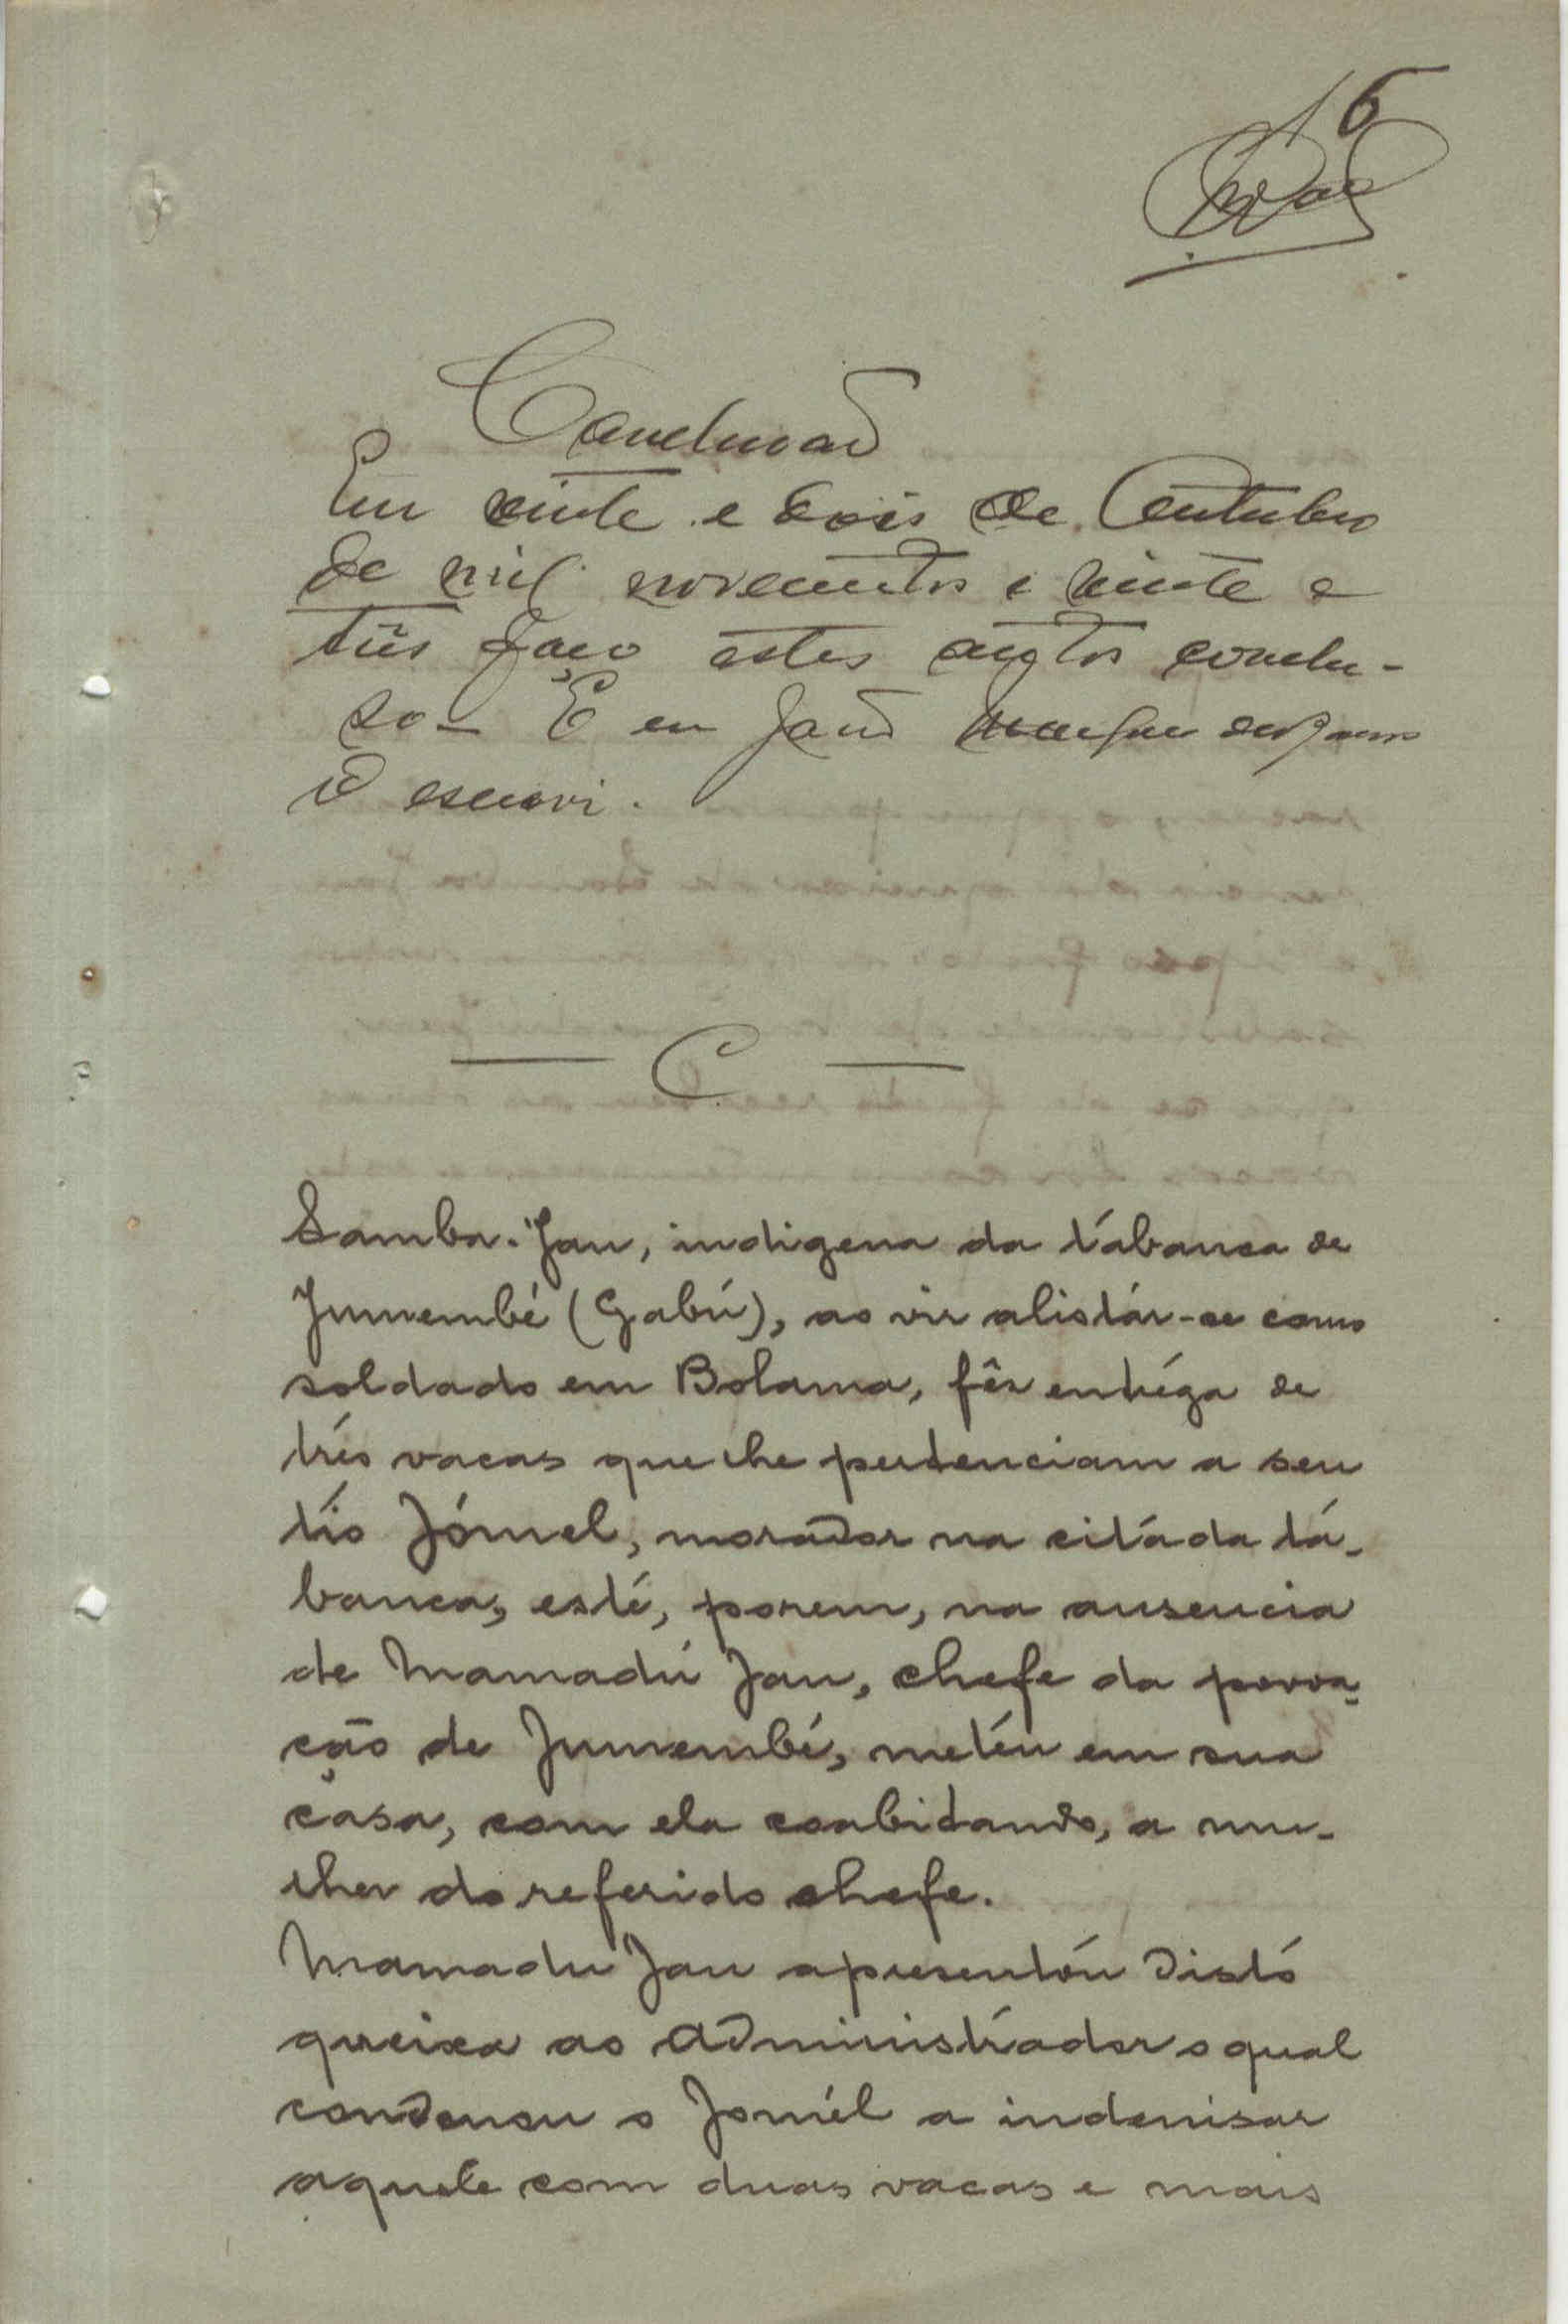 6
Conclusão
Em vinte e dois de Outubro
de mil novecentos e vinte e
três faço estes autos conclu-
so- E eu João
o escrevi.
— C. —
Samba Jau, indigena da tábanca de
Jumembé (Gabú), ao vir alistár-se como
soldado em Bolama, fês entréga de
três vacas que lhe pertenciam a seu
tio Jómel, morador na citáda tá-
banca, esté, porem, na ausencia
de Mamadú Jau, chefe da povoa-
ção de Jumembé, metéu em sua
casa, com ela coabitando, a mu-
lher do referido chefe.
Mamadu Jau apresentóu distó
queixa ao Administrador o qual
condenou o Jomél a indemnisar
aquele com duas vacas e mais